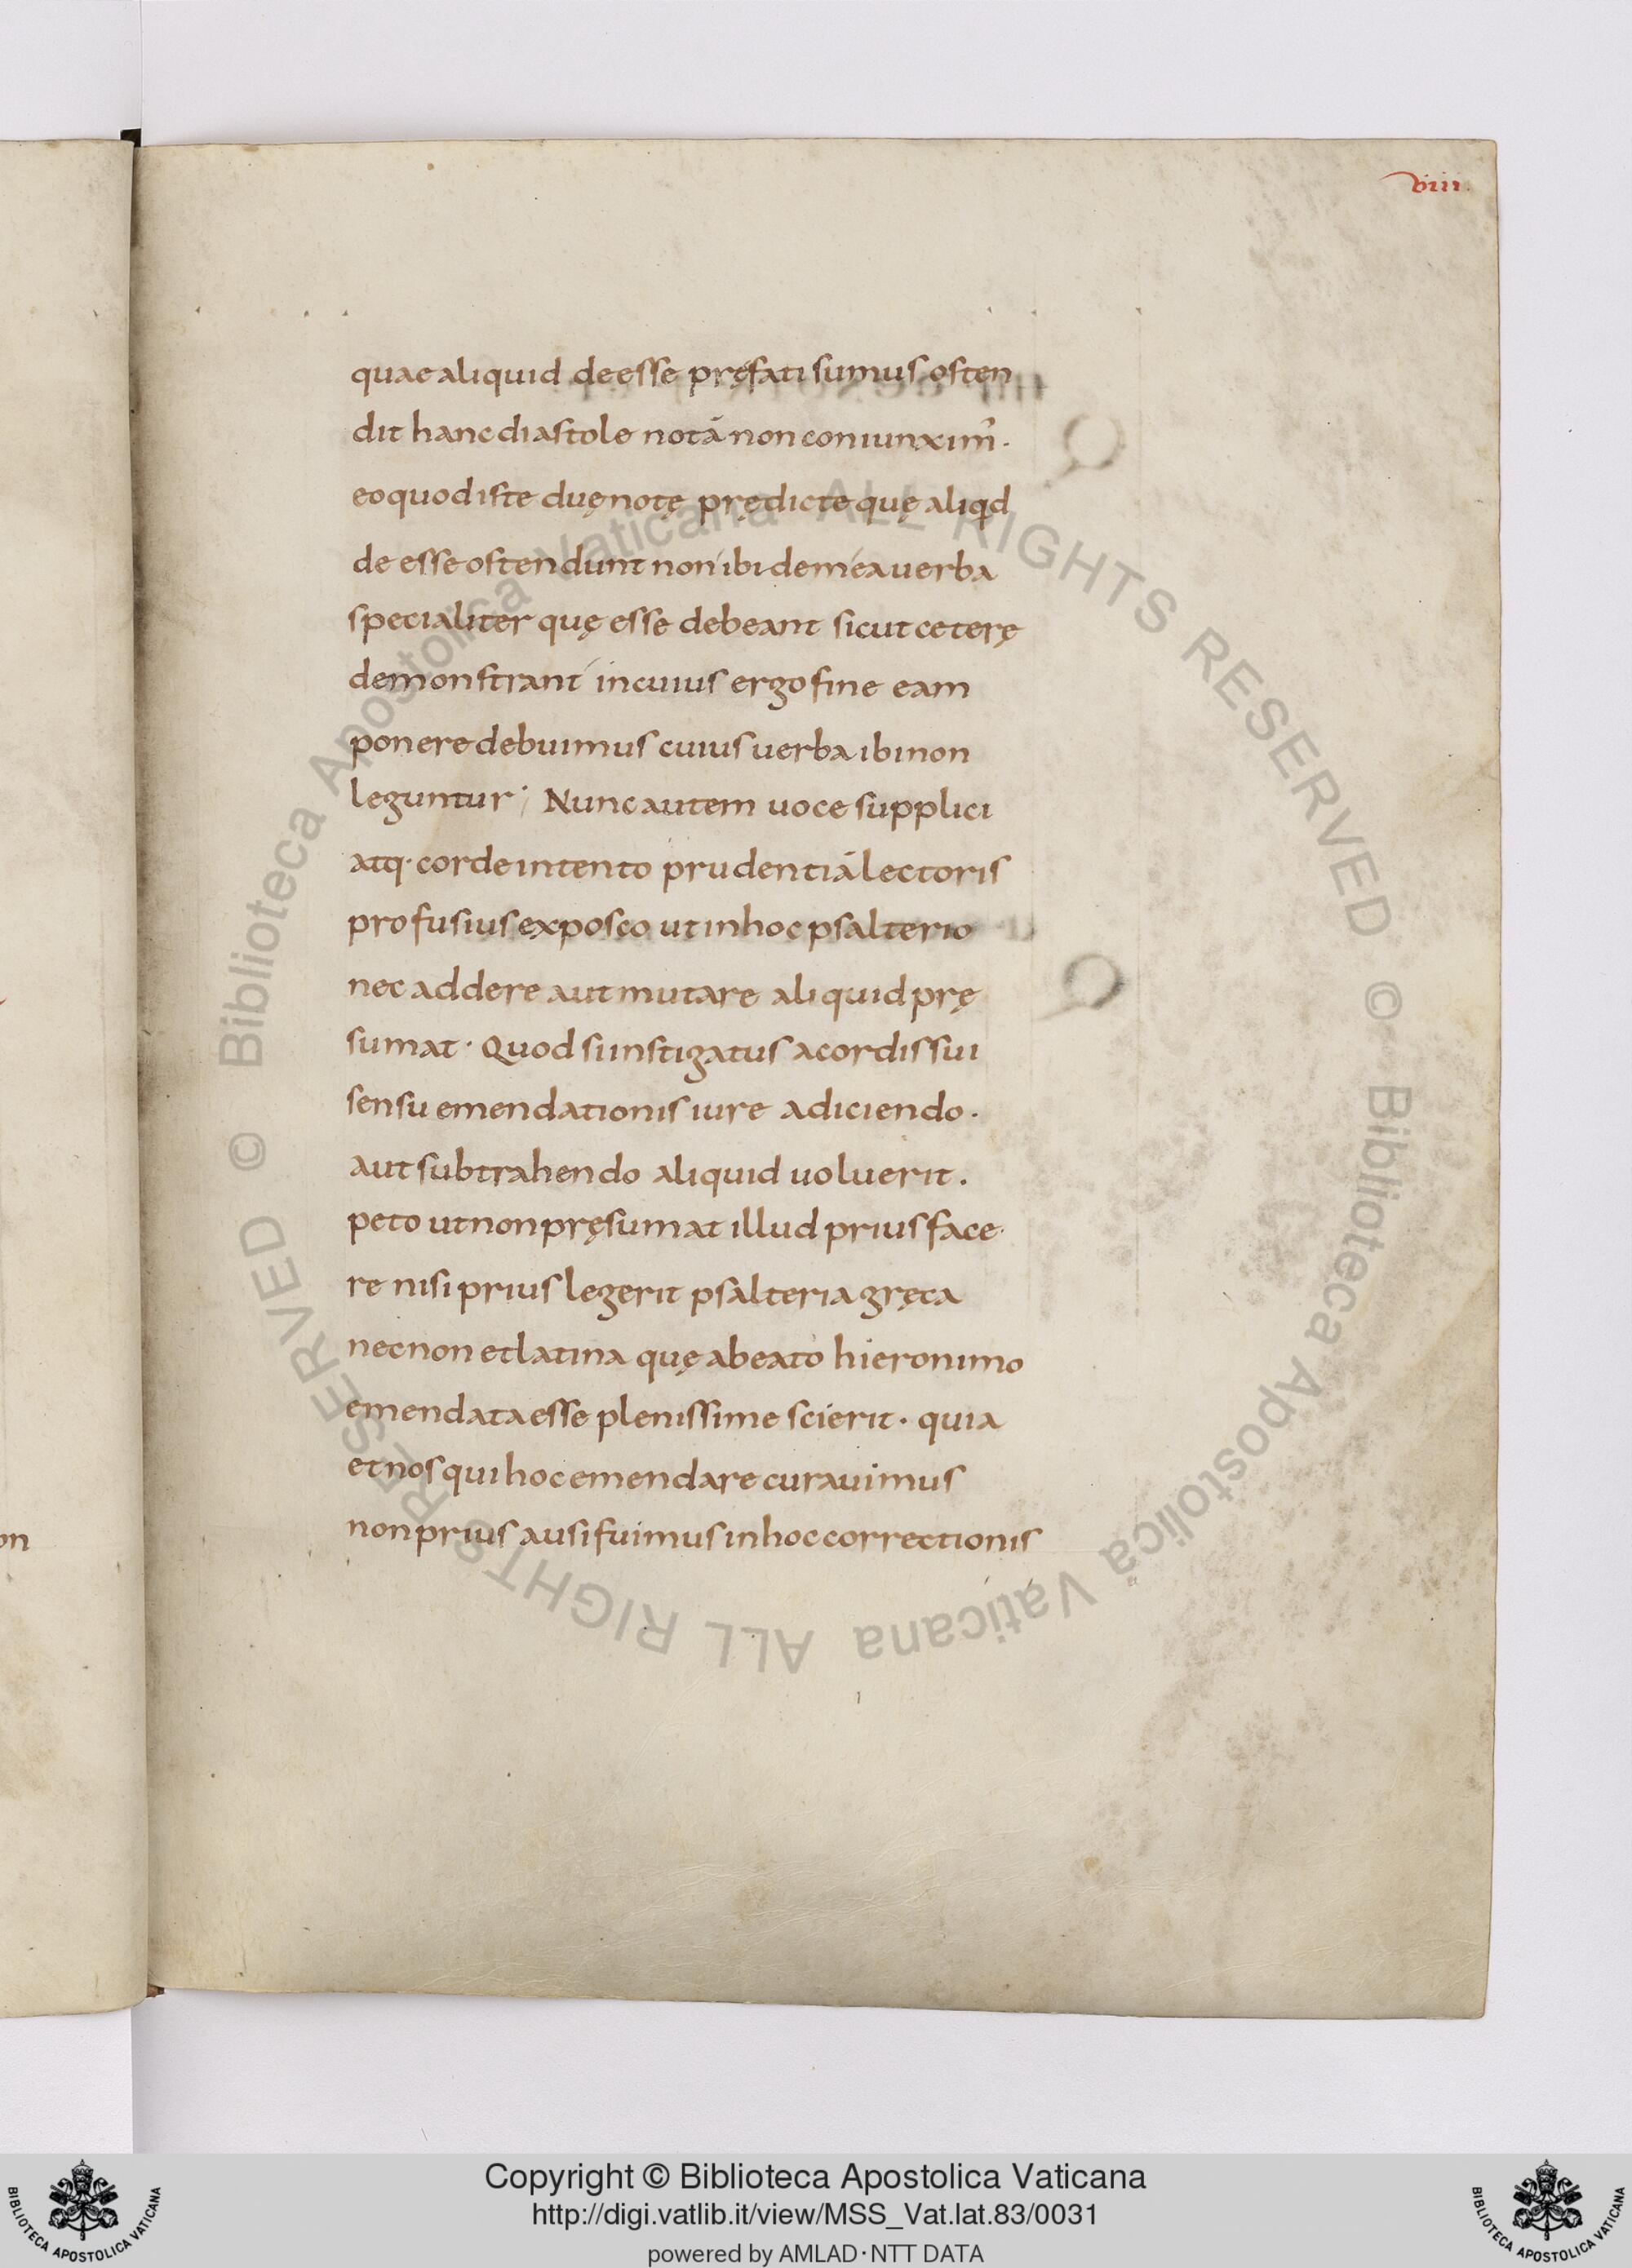 viii.
quae aliquid deesse pręfati sumus osten
dit hanc diastole notā non coniunxim᾽.
eo quod iste duę notę prędicte quę aliqd
de esse ostendunt non ibidem ea uerba
specialiter quę esse debeant sicut ceterę
demonstrant in cuius ergo fine eam
ponere debuimus cuius uerba ibi non
leguntur; Nunc autem uoce supplici
atq· corde intento prudentiā lectoris
profusius exposco ut in hoc psalterio
nec addere aut mutare aliquid prę
sumat· Quod si instigatus a cordis sui
sensu emendationis iure adiciendo.
aut subtrahendo aliquid uoluerit.
peto ut non pręsumat illud prius face
re nisi prius legerit psalteria gręca
necnon et latina quę a beato hieronimo
emendata esse plenissime scierit· quia
et nos qui hoc emendare curauimus
non prius ausi fuimus in hoc correctionis
on
© Biblioteca Apostolica Vaticana ALL RIGHTS RESERVED
© Biblioteca Apostolica Vaticana ALL RIGHTS RESERVED
Copyright © Biblioteca Apostolica Vaticana
http://digi.vatlib.it/view/MSS_Vat.lat.83/0031
powered by AMLAD·NTT DATA
BIBLIOTECA APOSTOLICA VATICANA
BIBLIOTECA APOSTOLICA VATICANA